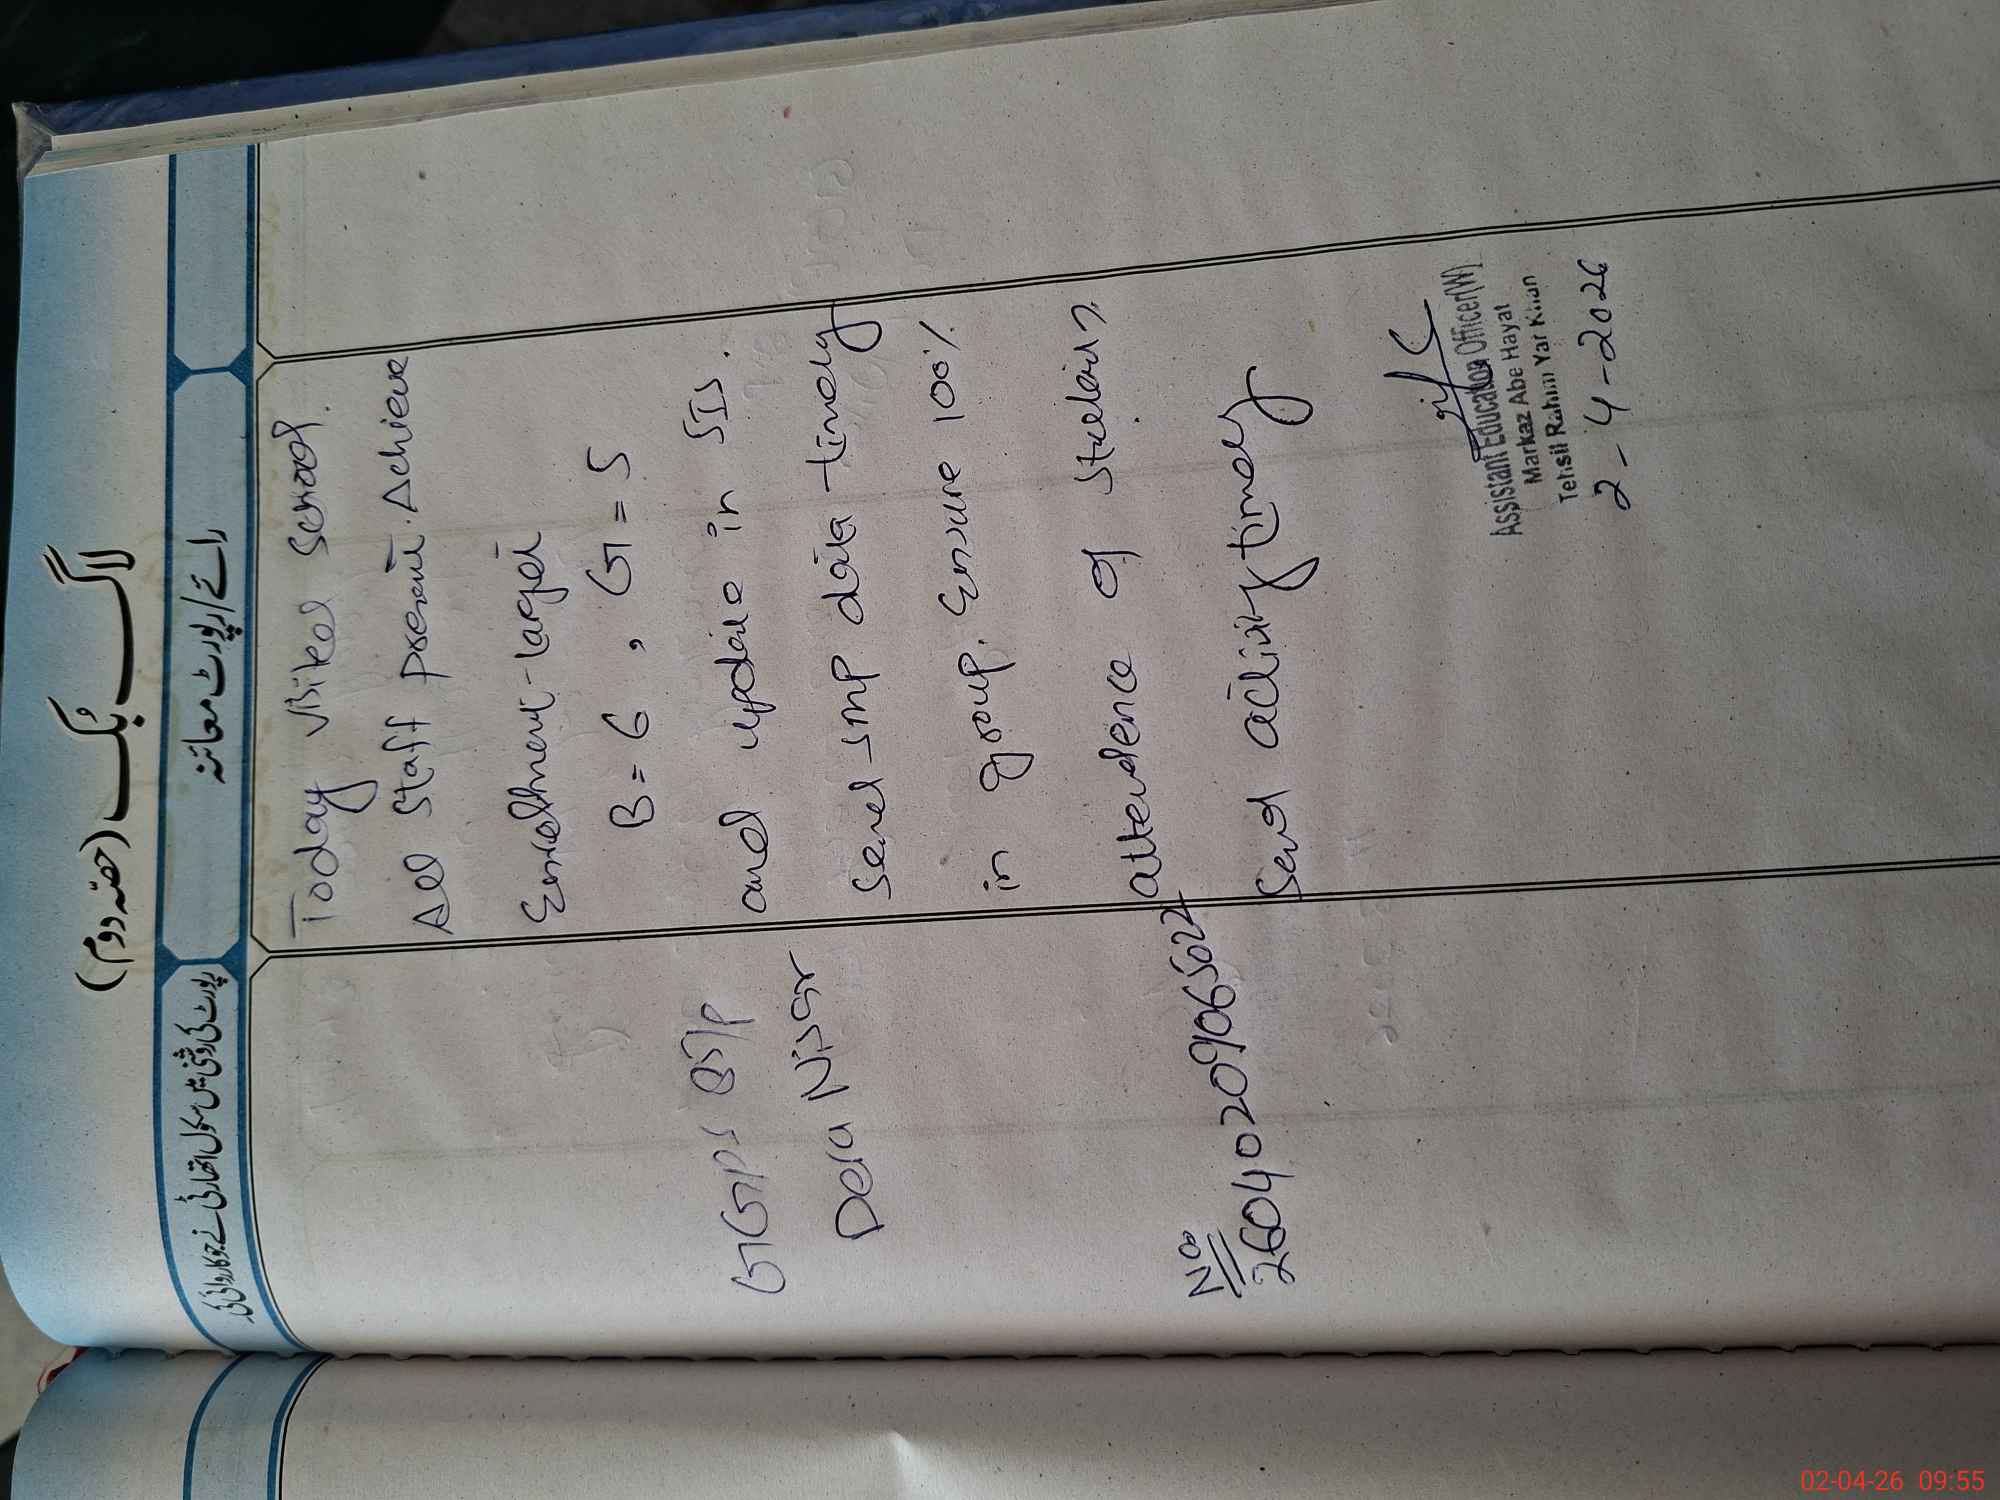 لاگ بُک (حصّہ دوم)
رائے/رپورٹ معائنہ
رپورٹ کی روشنی میں سکول اتھارٹی نے جو کاروائی کی
Today visited school.
All staff present. Achieve
Enrolment target
B = 6 , G = 5
and update in SIS.
send SMP data timely
in group. Ensure 100%
attendence of students.
Send activity timely
GGPS 85/P
Dera Nisar
No
26040209065022
Assistant Education Officer(W)
Markaz Abe Hayat
Tehsil Rahim Yar Khan
2-4-2026
02-04-26 09:55